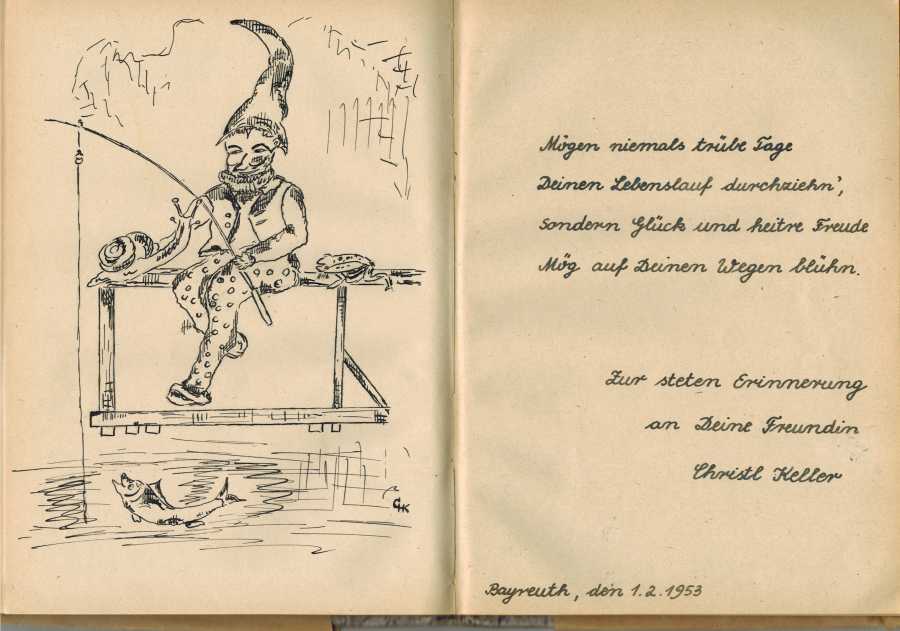 CHK
Mögen niemals trübe Tage
Deinen Lebenslauf durchziehn',
sondern Glück und heitre Freude
Mög auf Deinen Wegen blühn.
Zur steten Erinnerung
an Deine Freundin
Christl Keller
Bayreuth, den 1.2.1953